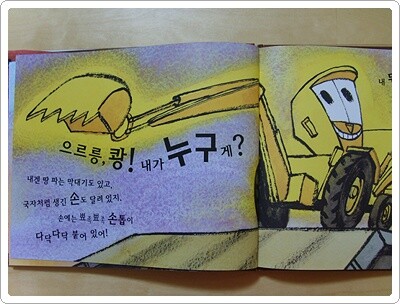 으르릉, 쾅! 내가 누구게?
내겐 땅 파는 막대기도 있고,
국자처럼 생긴 손도 달려 있지.
손에는 뾰족뾰족 손톱이
다닥다닥 붙어 있어!
내